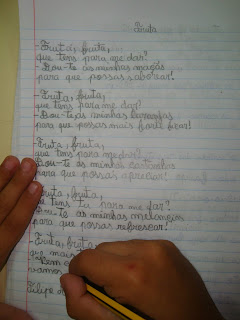 Fruta
- Fruta, fruta,
que tens para me dar?
- Dou-te as minhas maçãs
para que possas saborear!
- Fruta, fruta,
que tens para me dar?
- Dou-te as minhas
para que possas mais forte ficar!
- Fruta, fruta,
que tens para me dar?
- Dou-te as minhas
para que possas apreciar!
Fruta, fruta,
que tens tu para me dar?
- Dou-te as minhas melancias
para que possas refrescar!
- Fruta, fruta,
que mais
Bem
vamos
Filipe